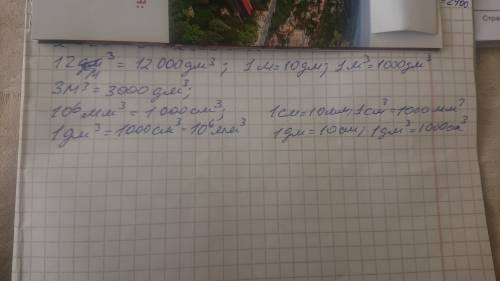 12 м³ = 12 000 дм³; 1 м = 10 дм; 1 м³ = 1000 дм³
3 м³ = 3000 дм³;
10⁶ мм³ = 1 000 см³; 1 см = 10 мм; 1 см³ = 1000 мм³
1 дм³ = 1000 см³ = 10⁶ мм³ 1 дм = 10 см; 1 дм³ = 1000 см³